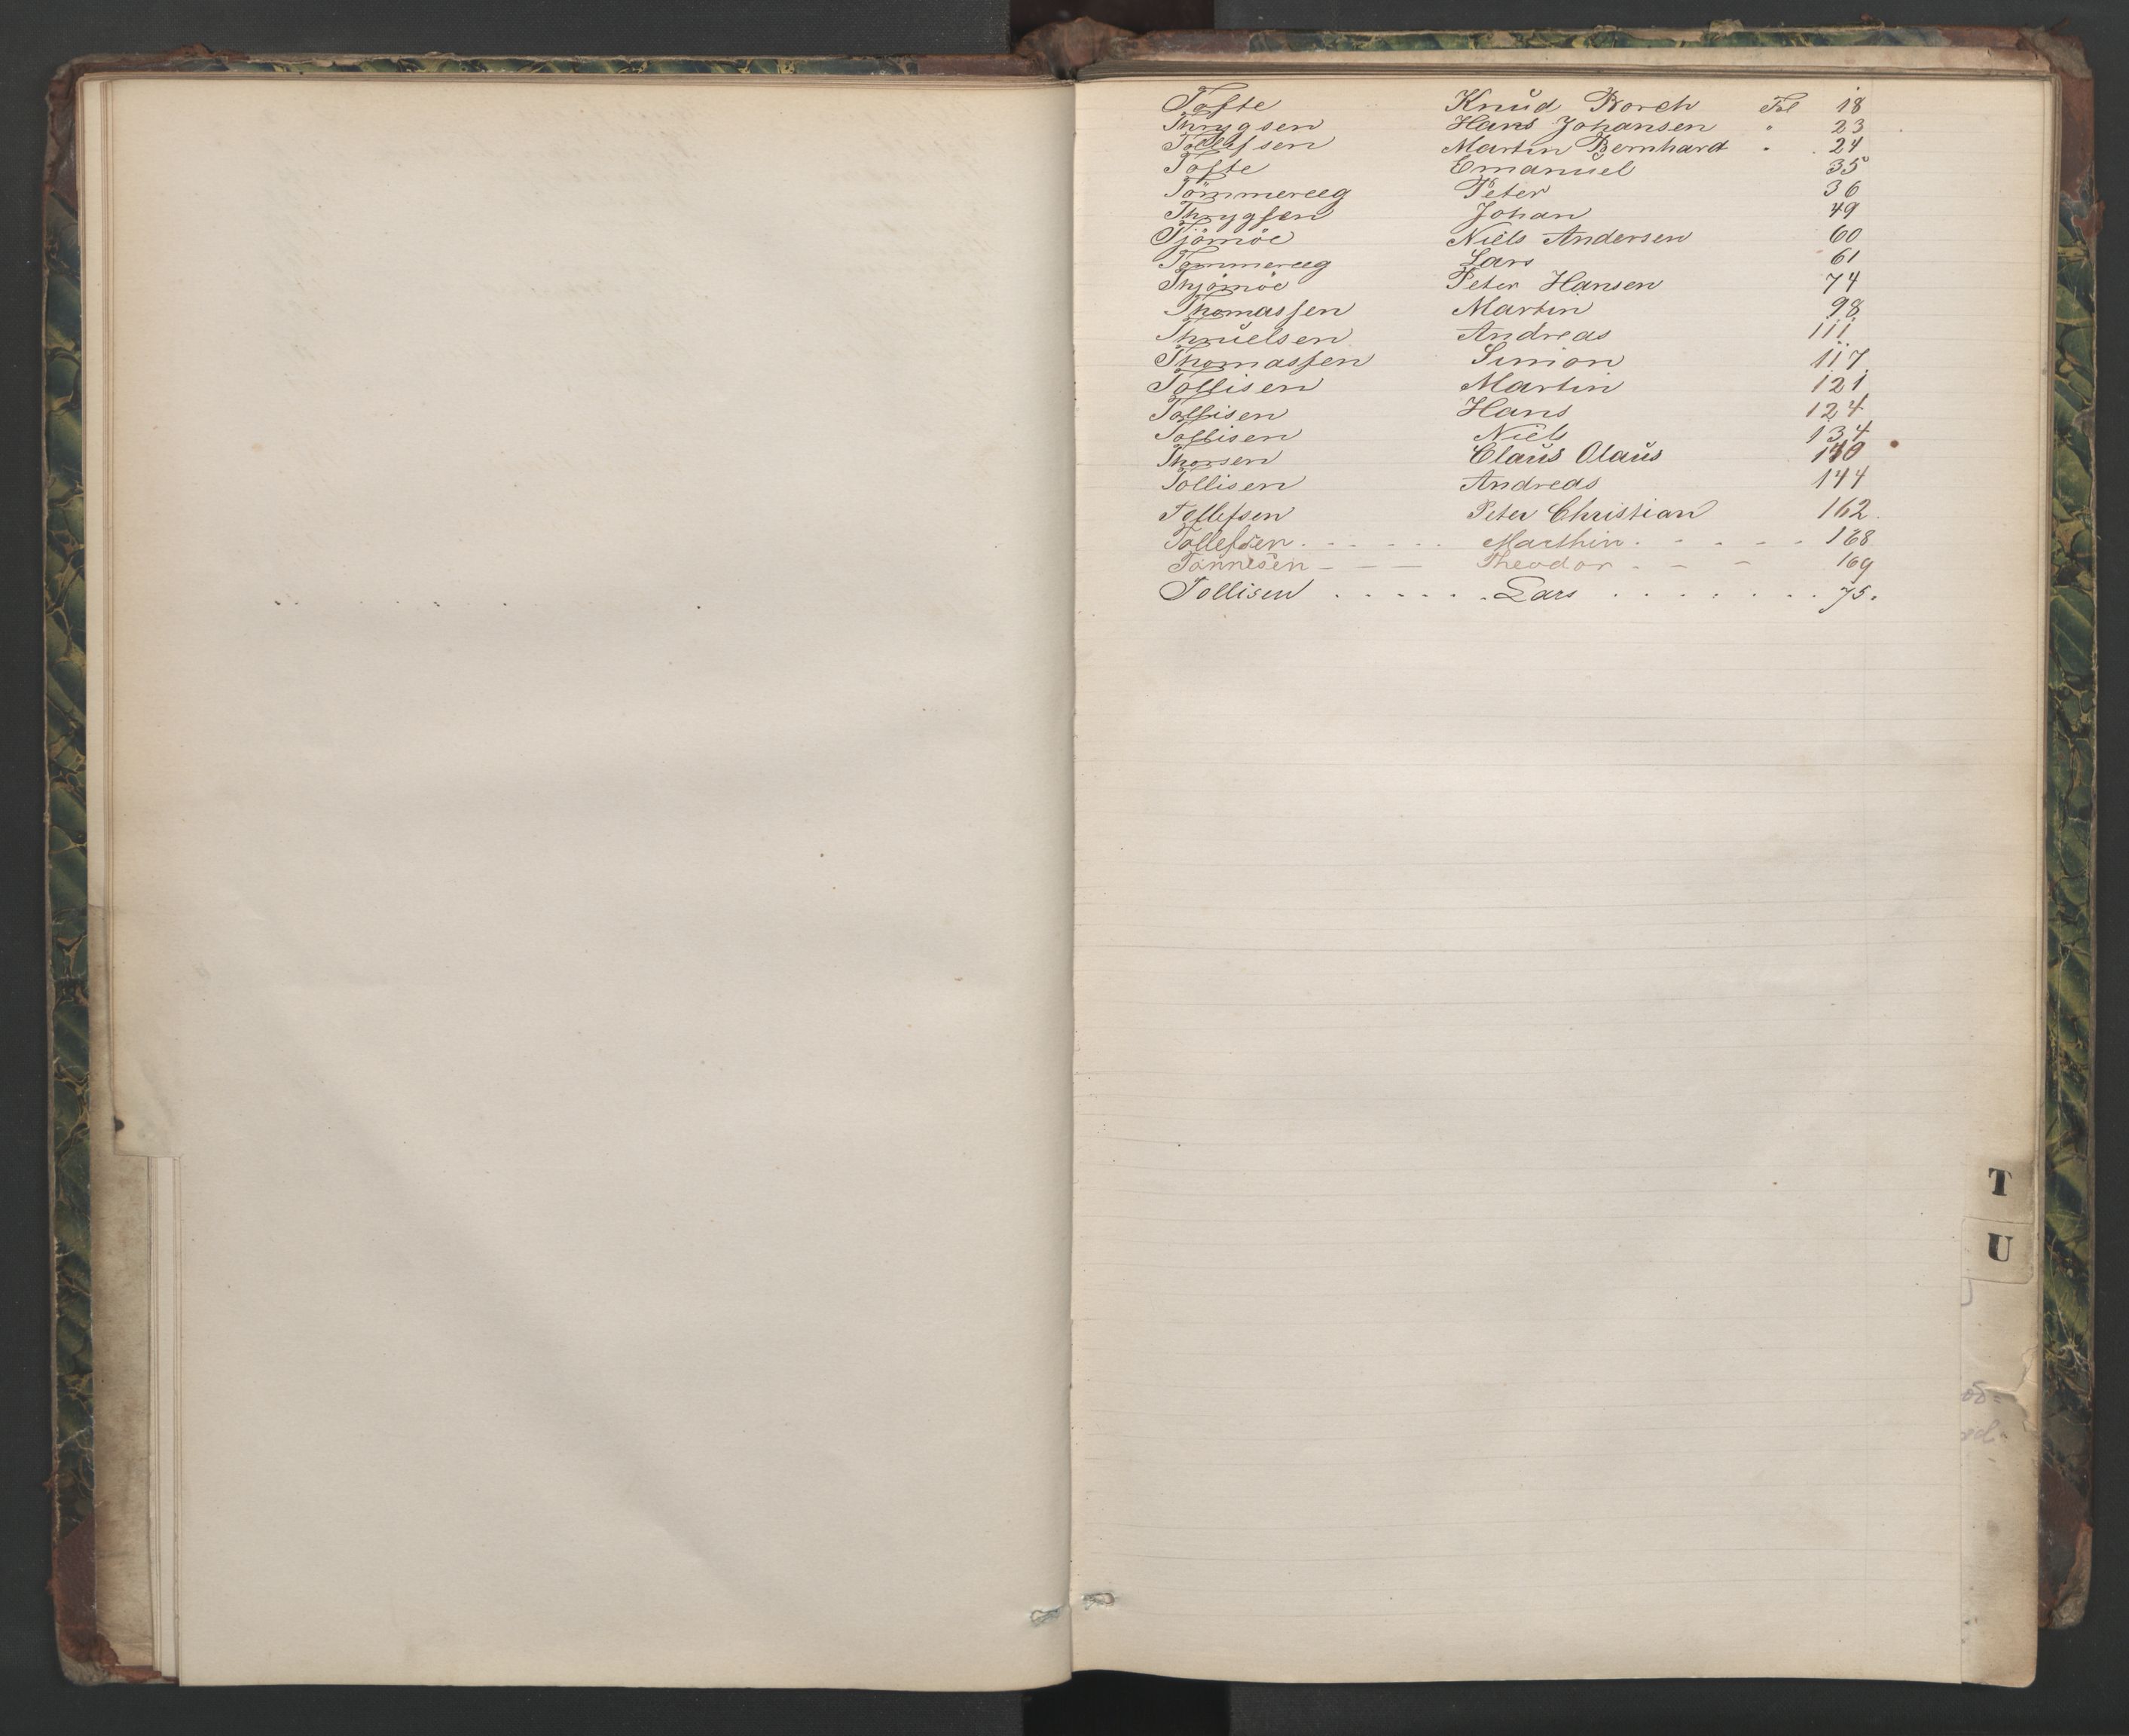 Tofte Knud Borch Fol 18
Thrygsen Hans Johansen " 23
Tollefsen Martin Bernhard " 24
Tofte Emanuel 35
Tömmereeg Peter 36
Thrygsen Johan 49
Tjömöe Niels Andersen 60
Tømmereeg Lars 61
Thjömöe Peter Hansen 74
Thomassen Martin 98
Thruelsen Andreas 111
Thomassen Simon 117
Tollisen Martin 121
Tollisen Hans 124
Tollisen Niels 134
Thorsen Claus Olaus 140
Tollisen Andreas 144
Tollefsen Peter Christian 162
Tollefsen . . . . . Marthin . . . . . 168
Tönnesen - - - Theodor - - - 169
Tollisen . . . . . . Lars . . . . . . . 75.
T
U